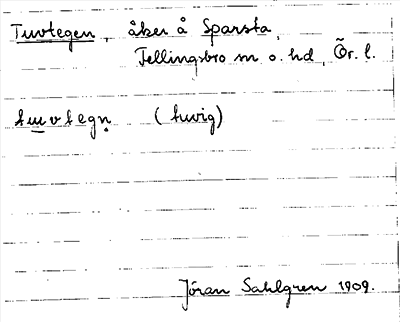 Tuvtegen, åker å Sparsta,
Fellingsbro sn o. hd, Ör. l.
tuvtegn (tuvig)
Jöran Sahlgren 1909.